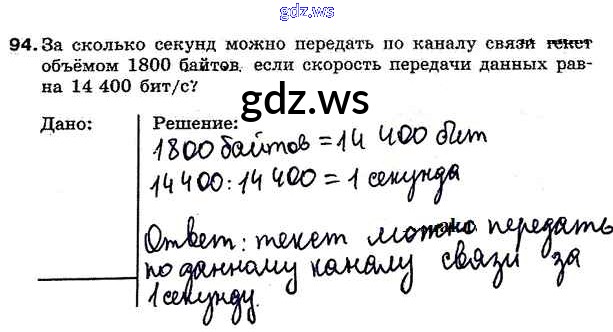 gdz.ws
94. За сколько секунд можно передать по каналу связи текст
объёмом 1800 байтов, если скорость передачи данных рав-
на 14 400 бит/с?
gdz.ws
Дано:
Решение:
1800 байтов = 14 400 бит
14 400 : 14 400 = 1 секунда
Ответ: текст можно передать
по данному каналу связи за
1 секунду.